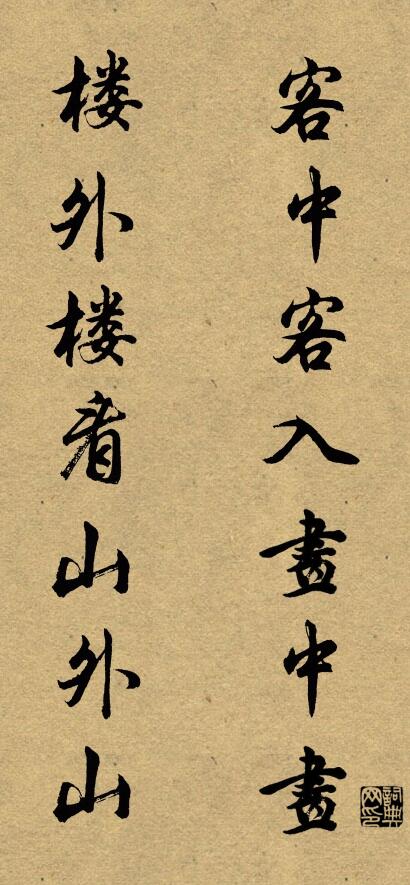 客中客入畫中畫
楼外楼看山外山
詞典網印